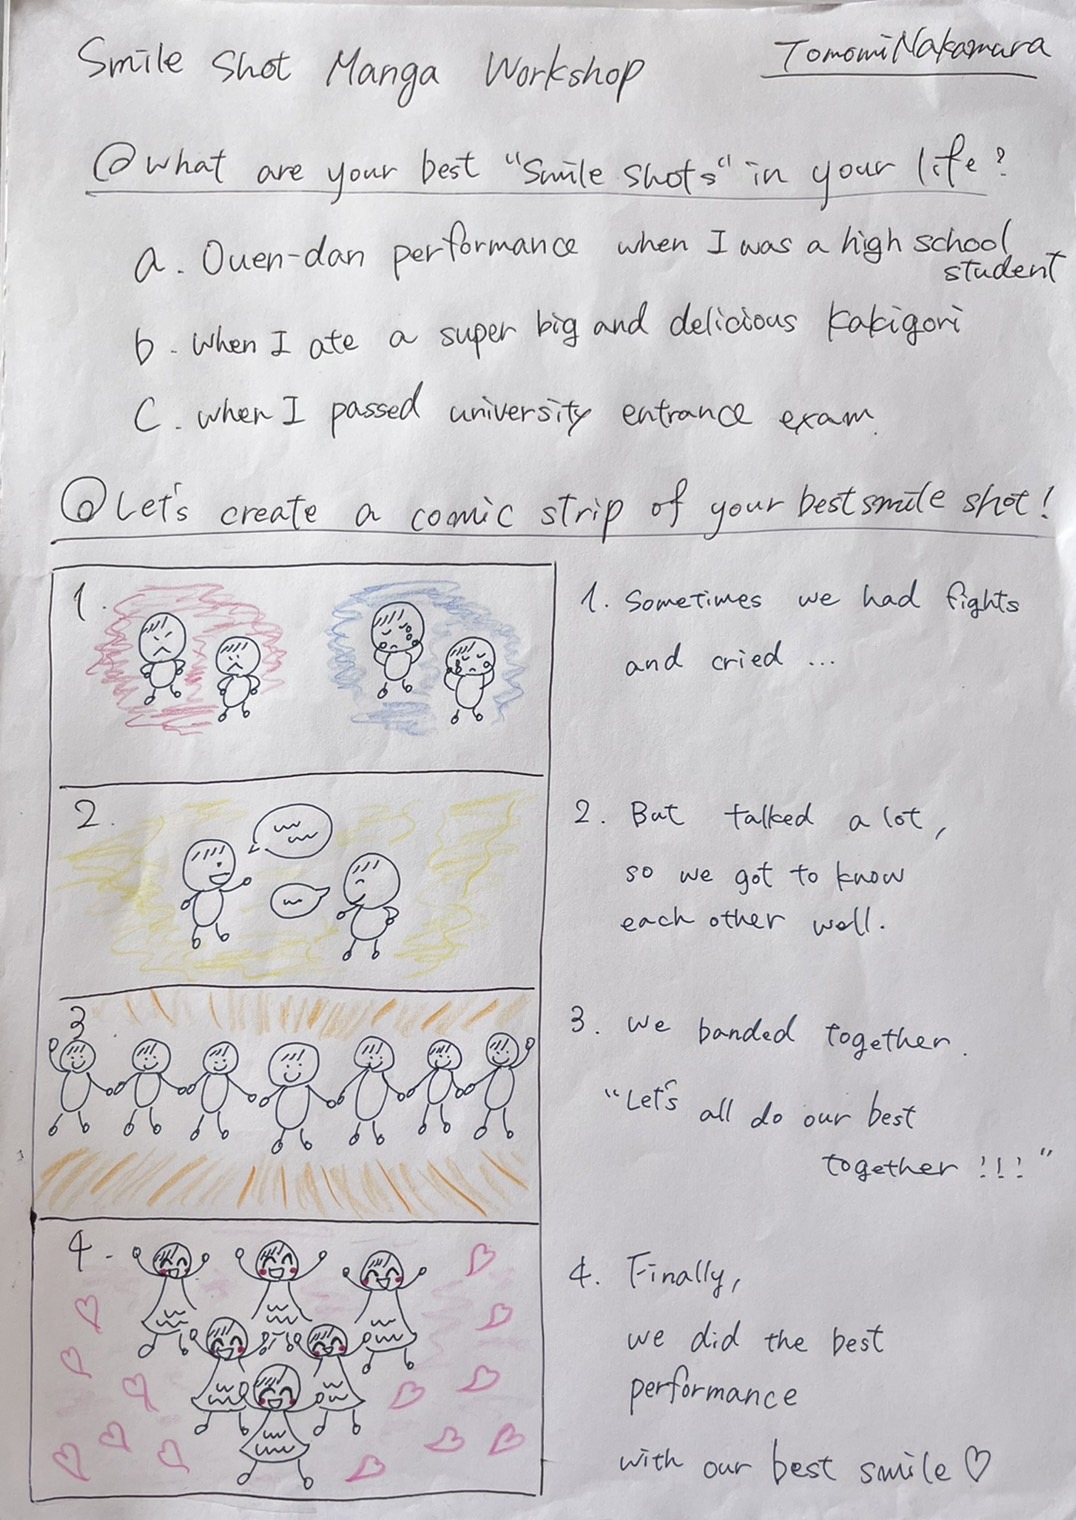 Smile Shot Manga Workshop
Tomomi Nakamura
What are your best "Smile Shots" in your life?
a. Ouen-dan performance when I was a high school
student
b. When I ate a super big and delicious Kakigori
C. when I passed university entrance exam.
Let's create a comic strip of your best smile shot!
1.
1. Sometimes we had fights
and cried ...
2.
2. But talked a lot,
so we got to know
each other well.
3.
3. We banded together.
"Let's all do our best
together !!!"
4.
4. Finally,
we did the best
performance
with our best smile ♡